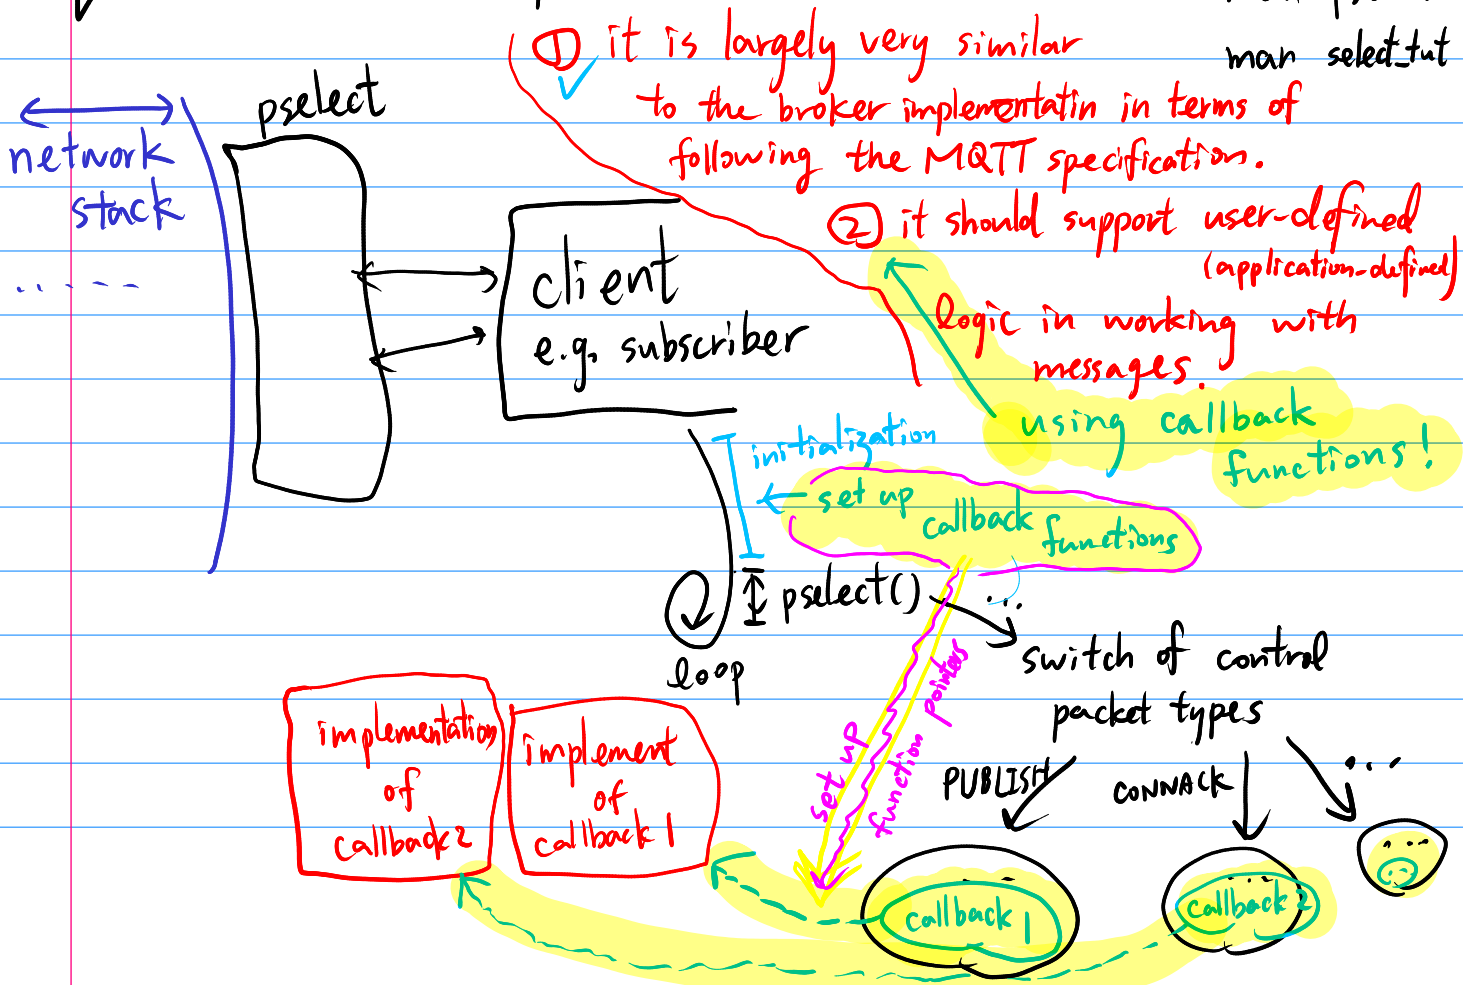 man select_tut
① it is largely very similar
to the broker implementatin in terms of
following the MQTT specification.
② it should support user-defined
(application-defined)
logic in working with
messages.
using callback
functions!
pselect
network
stack
......
client
e.g. subscriber
initialization
set up
callback functions
pselect()
...
loop
switch of control
packet types
PUBLISH
CONNACK
...
set up
function pointers
implementation
of
callback 2
implement
of
callback 1
callback 1
callback 2